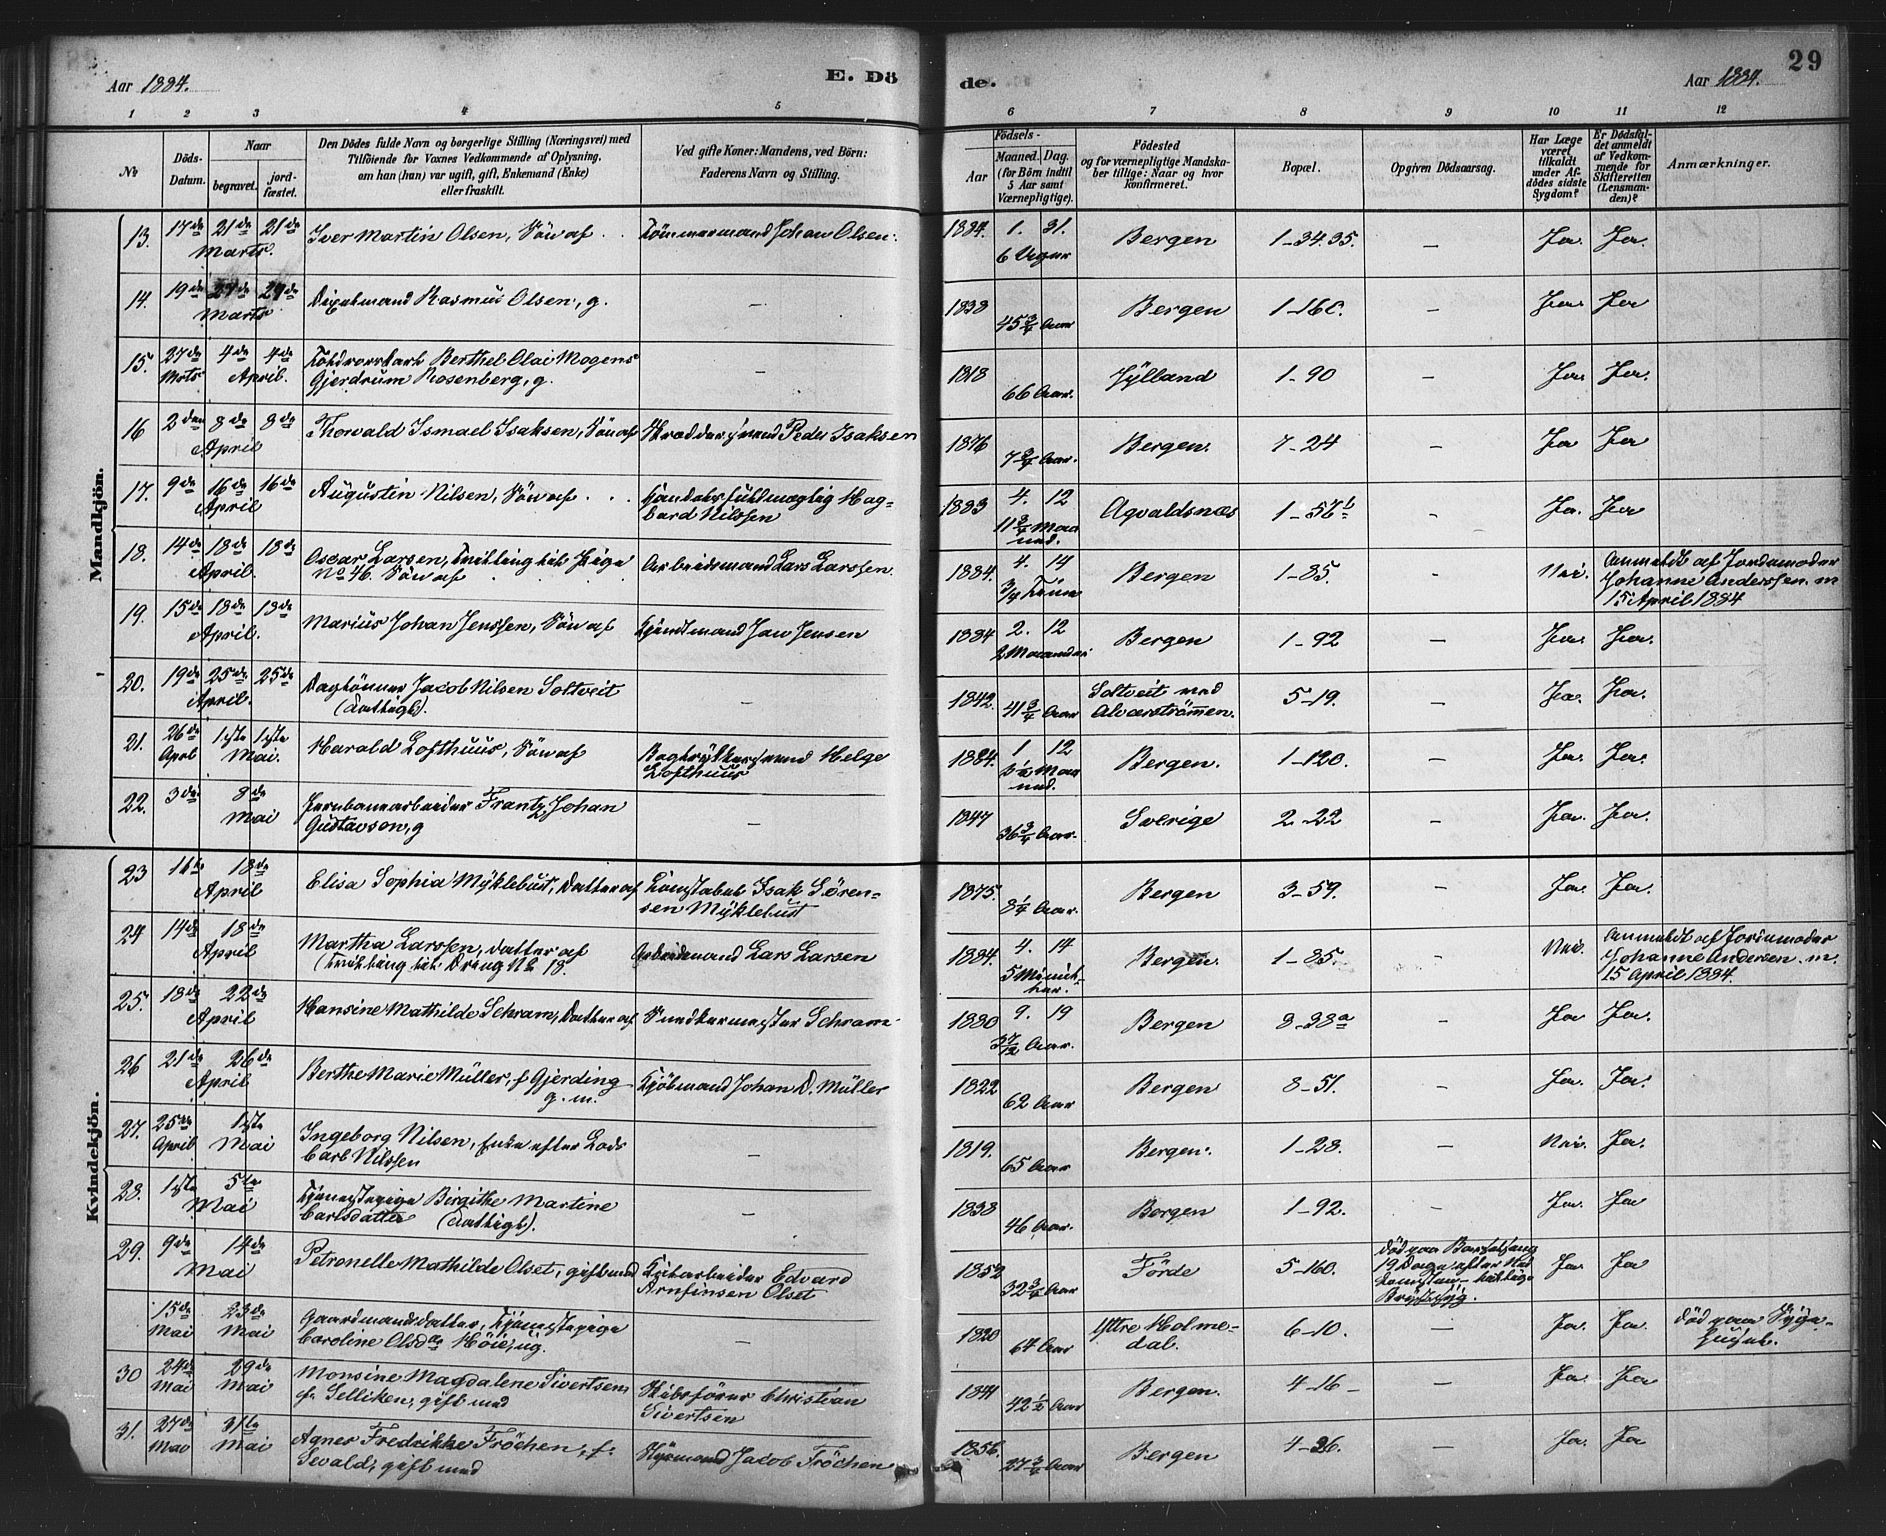 29
Aar 1884.
E. Dö
de.
Aar 1884.
1 2 3 4 5 6 7 8 9 10 11 12
No
Döds-
Datum.
Naar
begravet.
jord-
fæstet.
Den Dödes fulde Navn og borgerlige Stilling (Næringsvei) med
Tilföiende for Voxnes Vedkommende af Oplysning,
om han (hun) var ugift, gift, Enkemand (Enke)
eller fraskilt.
Ved gifte Koner: Mandens, ved Börn:
Faderens Navn og Stilling.
Födsels-
Aar
Maaned. Dag.
(for Börn indtil
5 Aar samt
Værnepligtige).
Födested
og for værnepligtige Mandska-
ber tillige: Naar og hvor
konfirmeret.
Bopæl.
Opgiven Dödsaarsag.
Har Læge
været
tilkaldt
under Af-
dödes sidste
Sygdom?
Er Dödsfal-
det anmeldt
af Vedkom-
mende for
Skifteretten
(Lensman-
den)?
Anmærkninger.
Mandkjön.
13. 17de 21de 21de Iver Martin Olsen, Sön af Tömmermand Johan Olsen. 1884. 1. 31. Bergen 1-34.35. — Ja. Ja.
Marts. 6 Uger
14. 19de 27de 27de Rasmus Olsen, g. — 1838 Bergen 1-160. — Ja. Ja
Marts 45 3/4 Aar
15. 27de 4de 4de Berthel Olai Mogens — 1818 Jylland 1-90 — Ja. Ja.
Mrts April. Gjerdrum Rosenberg, g. 66 Aar.
16 2den 8de 8de Thorvald Ismael Isaksen, Sön af Skræddersvend Peder Isaksen 1876 Bergen. 7-24 — Ja Ja
April 7 3/4 Aar.
17. 9de 16de 16de Augustin Nilsen, Sön af Handelsfuldmægtig Hag-
April bard Nilssen 1883 4. 12 Agvaldsnæs 1-57b — Ja. Ja
11 3/4 Maa
ned.
18. 14de 18de 18de Oscar Larsen, Tvilling til Pige Arbeidsmand Lars Larssen. 1884. 4. 14 Bergen 1-85. — Nei. Anmeldt af Jordemoder
April. No 46. Sön af 3/4 Time Johanne Anderssen. m
15 April 1884
19. 15de 18de 18de Marius Johan Jenssen, Sön af Jan Jensen 1884 2. 12 Bergen 1-92 — Ja. Ja.
April. 2 Maaneder
20. 19de 25de 25de Daglönner Jacob Nilsen Soltveit — 1842. Soltveit ved 5-19. — Ja. Ja.
April. (Fattigl). 41 3/4 Aar Alverströmmen.
21. 26de 1ste 1ste Harald Lofthuus, Sön af Bogtrykkersvend Helge 1884. 1 12 Bergen. 1-120. — Ja. Ja.
Aprl Mai. Lofthuus 3 1/2 Maa
ned.
22. 3de 8de Jernbanearbeider Frantz Johan — 1847 Sverige 2-22 — Ja. Ja.
Mai Gustavson, g 36 3/4 Aar.
Kvindekjön.
23 18de Elisa Sophia Myklebust, Datter af Konstabel Isak Sören- 1875. Bergen 3-59. — Ja. Ja.
April sen Myklebust 8 1/4 Aar.
24 14de 18de Martha Larssen, datter af Arbeidsmand Lars Larsen 1884. 4. 14 Bergen. 1-85. — Nei. Anmeldt af Jordemoder
April (Tvilling til Dreng No 18. 5 Minut- Johanne Andersen. m.
ter. 15 April 1884.
25. 18de 22de Hansine Mathilde Schram, Datter af Schram. 1880 9. 19 Bergen 8-38a — Ja Ja.
April 3 7/12 Aar.
26 21de 26de Berthe Marie Müller, f Gjerding Kjöbmand Johan D. Müller 1822 Bergen 8-51. — Ja. Ja.
April g. m. 62 Aar
27. 25de 1ste Ingeborg Nilsen, Enke efter Lods — 1819. Bergen. 1-28. — Nei. Ja.
April Mai Carl Nilssen 65 Aar
28. 1ste 5te Tjenestepige Birgithe Martine — 1838 Bergen 1-92. — Ja. Ja
Mai Carlsdatter (Fattigl). 46 Aar.
29. 9de 14de Petronelle Mathilde Olset, gift med Edvard 1852 Förde 5-160. Död paa Barselseng Ja. Ja
Mai Arnfinsen Olset 32 3/4 Aar 19 Dage efter Ned
komsten-
Brystsyg.
15de 23de Gaardmandsdatter, Tjenestepige — 1820 Yttre Holme- 6-10. — Ja. Ja. Död paa Syge-
Mai Mai Caroline Olsda Höie, ug. 64 Aar dal. huset.
30 24de 29de Monsine Magdalene Sivertsen Skibsförer Christian 1841 Bergen. 4-16 — — Ja. Ja.
Mai Mai f. Selliken, gift med Sivertsen 42 1/2 Aar
31. 27de 31te Agnes Fredrikke Fröchen, f. Styrmand Jacob Fröchen 1856. Bergen 4-36. — Ja. Ja
Mai Mai Sevald, gift med 27 3/4 Aar